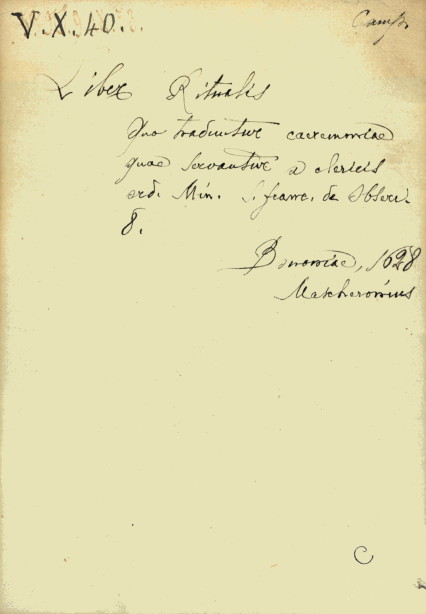 V.X.40.
Camp.
Liber Ritualis
Quo traduntur caeremoniae
quae servantur a clericis
ord. Min. S. franc. de Observ.
8.
Bononiae, 1628
Mascheronius
C